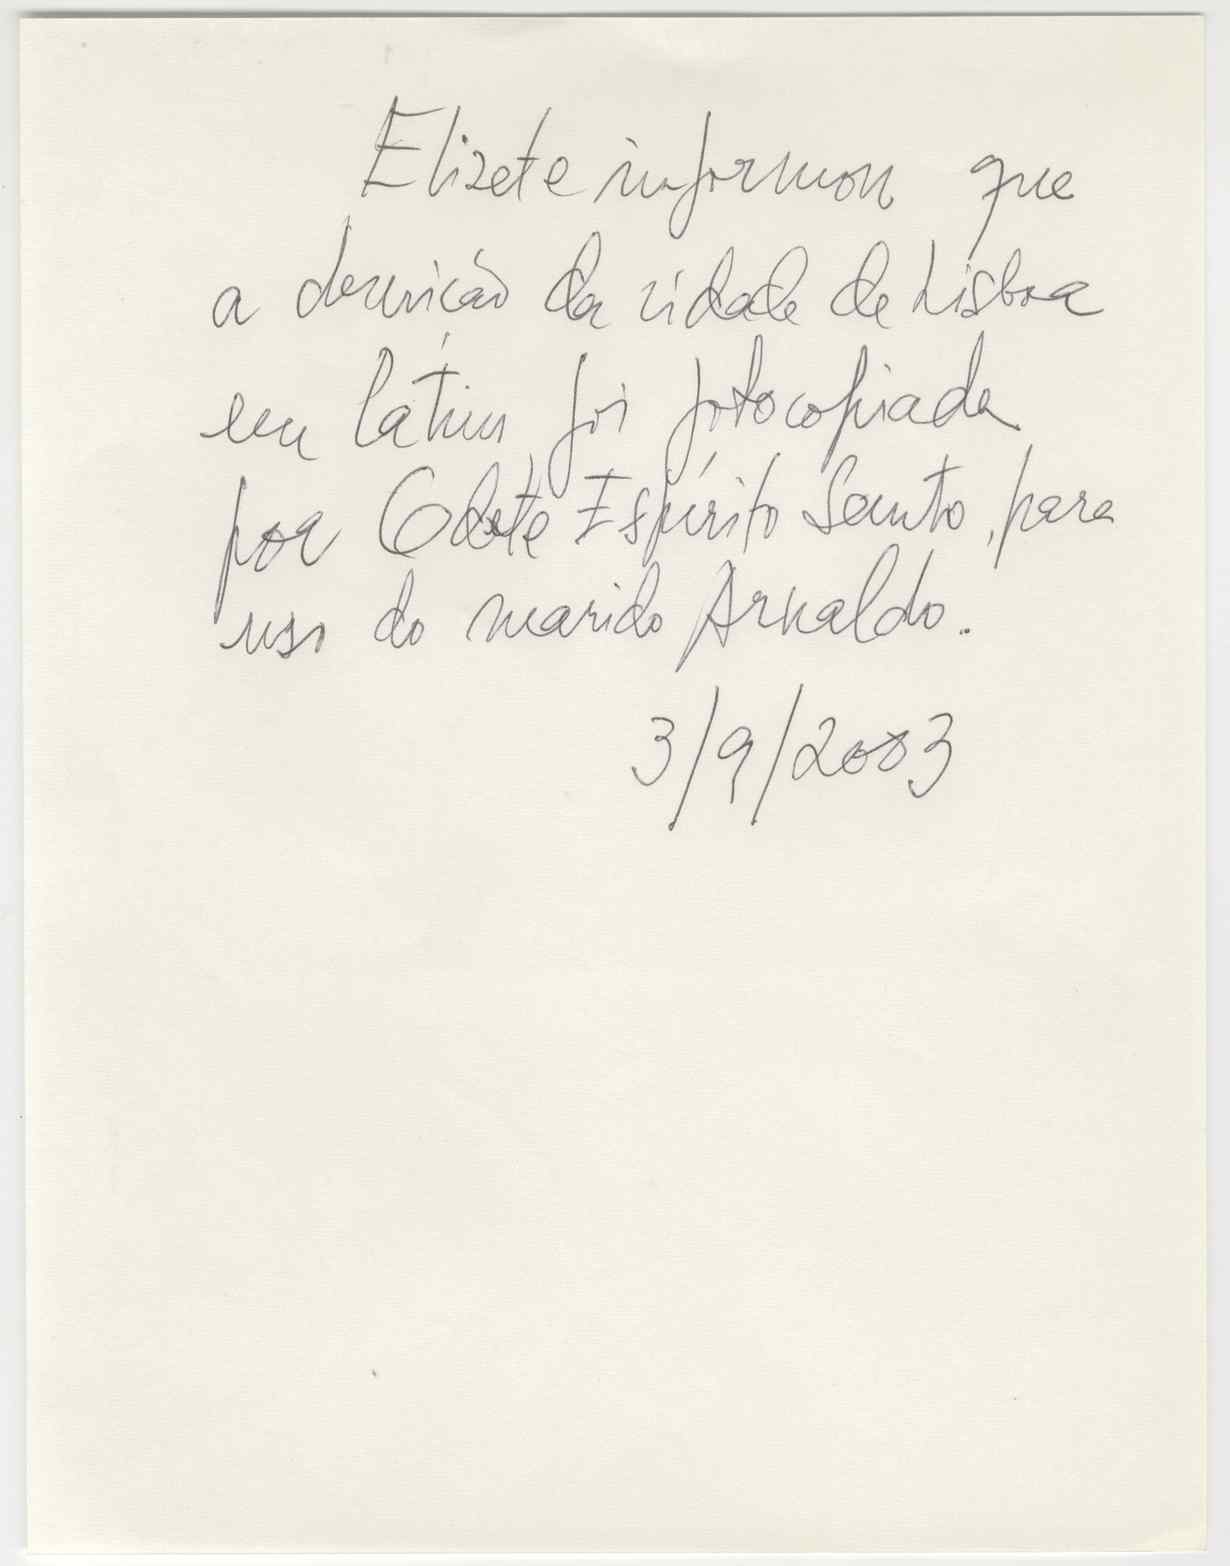 Elizete informou que
a descrição da cidade de Lisboa
em látim foi fotocopiada
por Odete Espírito Santo, para
uso do marido Arnaldo.
3/9/2003